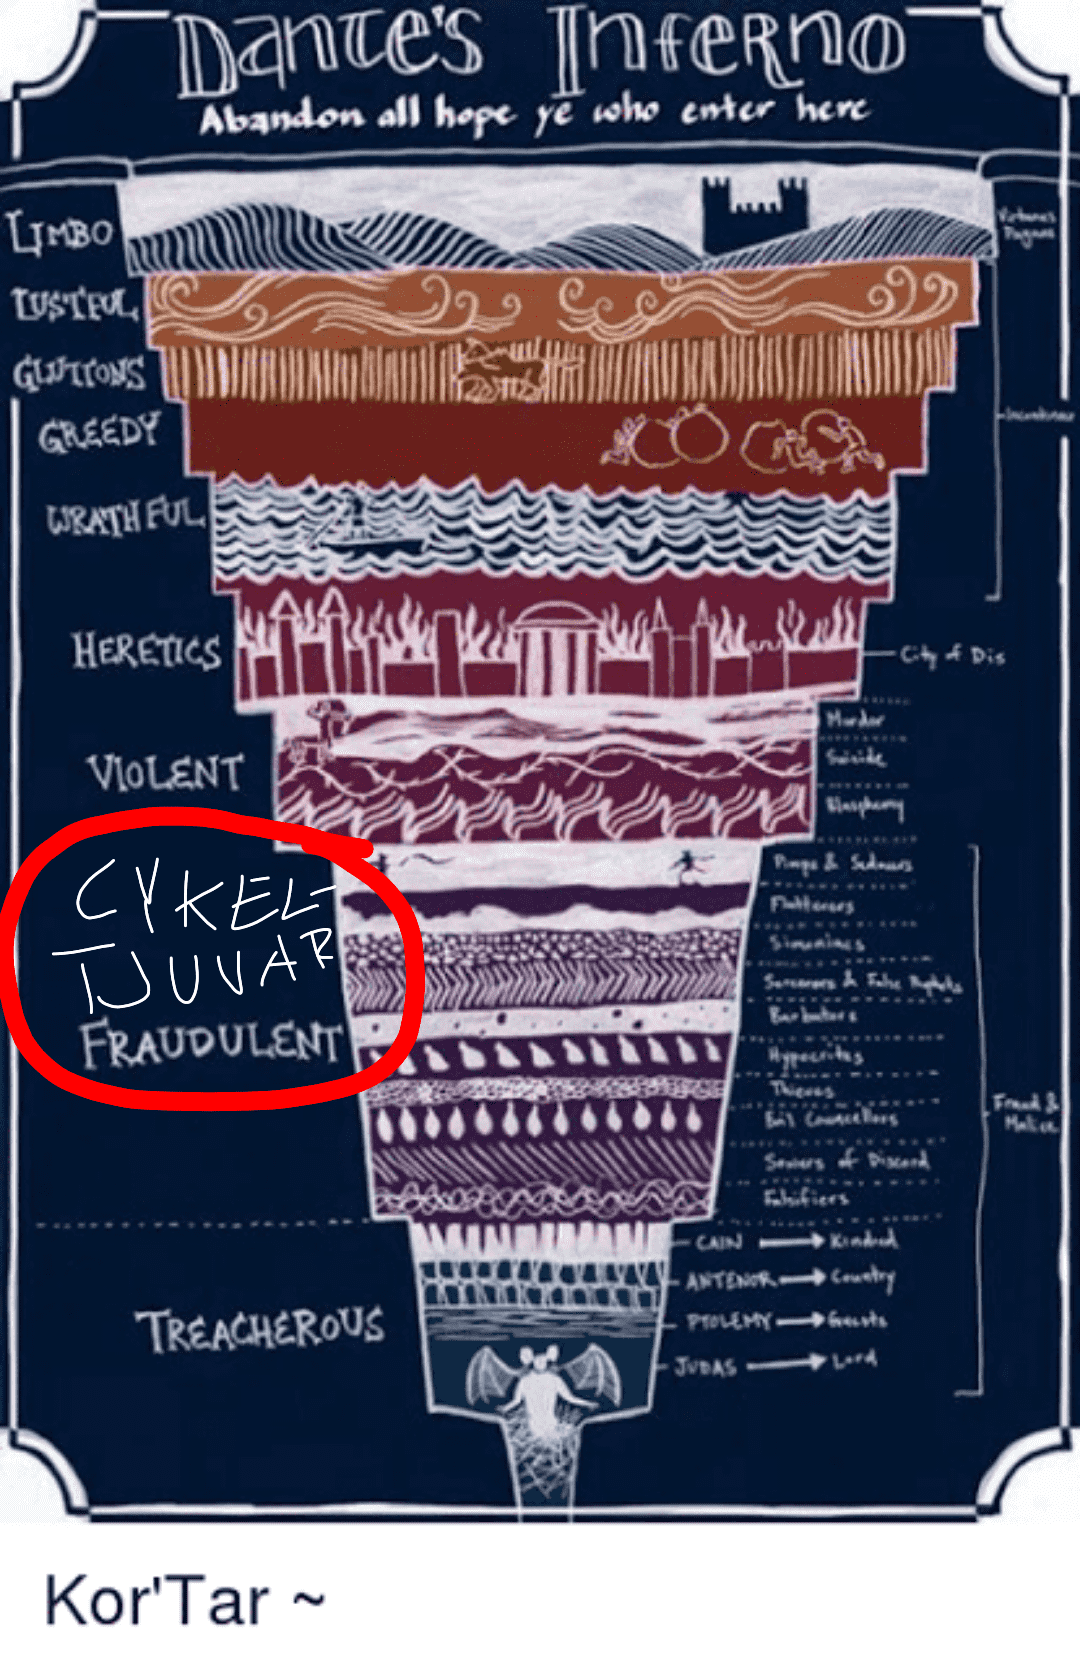 Dante's Inferno
Abandon all hope ye who enter here
LIMBO
Virtuous
Pagans
LUSTFUL
GLUTTONS
GREEDY
WRATHFUL
HERETICS
City of Dis
VIOLENT
Murder
Suicide
Blasphemy
CYKEL-
TJUVAR
FRAUDULENT
Pimps & Seducers
Flatterers
Simoniacs
Sorcerers & False Prophets
Hypocrites
Thieves
Evil Councellors
Sowers of Discord
Falsifiers
Fraud &
Malice
TREACHEROUS
CAIN Kindred
ANTENOR Country
PTOLEMY Guests
JUDAS Lord
Kor'Tar ~